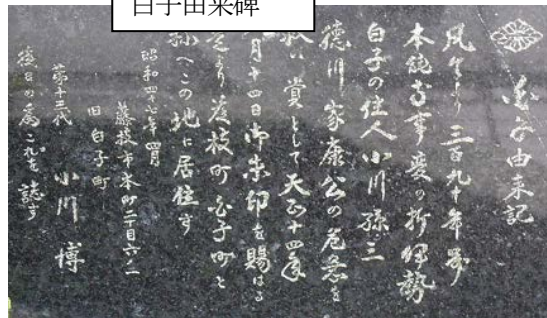 白子由来碑
白子由来記
凡そより三百九十年前
本能寺事変の折伊勢
白子の住人小川孫三
徳川家康公の危急を
救い賞として天正十四年
月十四日御朱印を賜はる
より藤枝町白子町と
称へこの地に居住す
昭和四十七年四月
藤枝市本町二丁目六ノ二
旧白子町
第十三代 小川 博
後日の為これを誌す